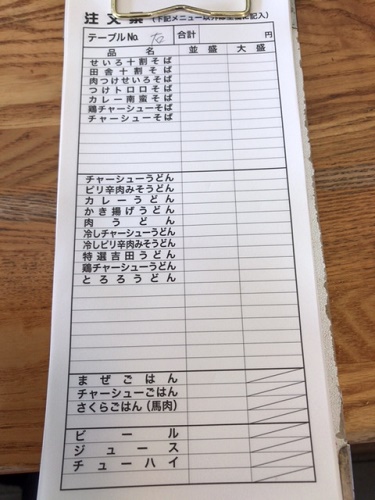 注文票 (下記メニュー以外は空欄に記入)
テーブルNo. 合計 円
品名 並盛 大盛
せいろ十割そば
田舎十割そば
肉つけせいろそば
つけトロロそば
カレー南蛮そば
鶏チャーシューそば
チャーシューそば
チャーシューうどん
ピリ辛肉みそうどん
カレーうどん
かき揚げうどん
肉うどん
冷しチャーシューうどん
冷しピリ辛肉みそうどん
特選吉田うどん
鶏チャーシューうどん
とろろうどん
まぜごはん
チャーシューごはん
さくらごはん(馬肉)
ビール
ジュース
チューハイ